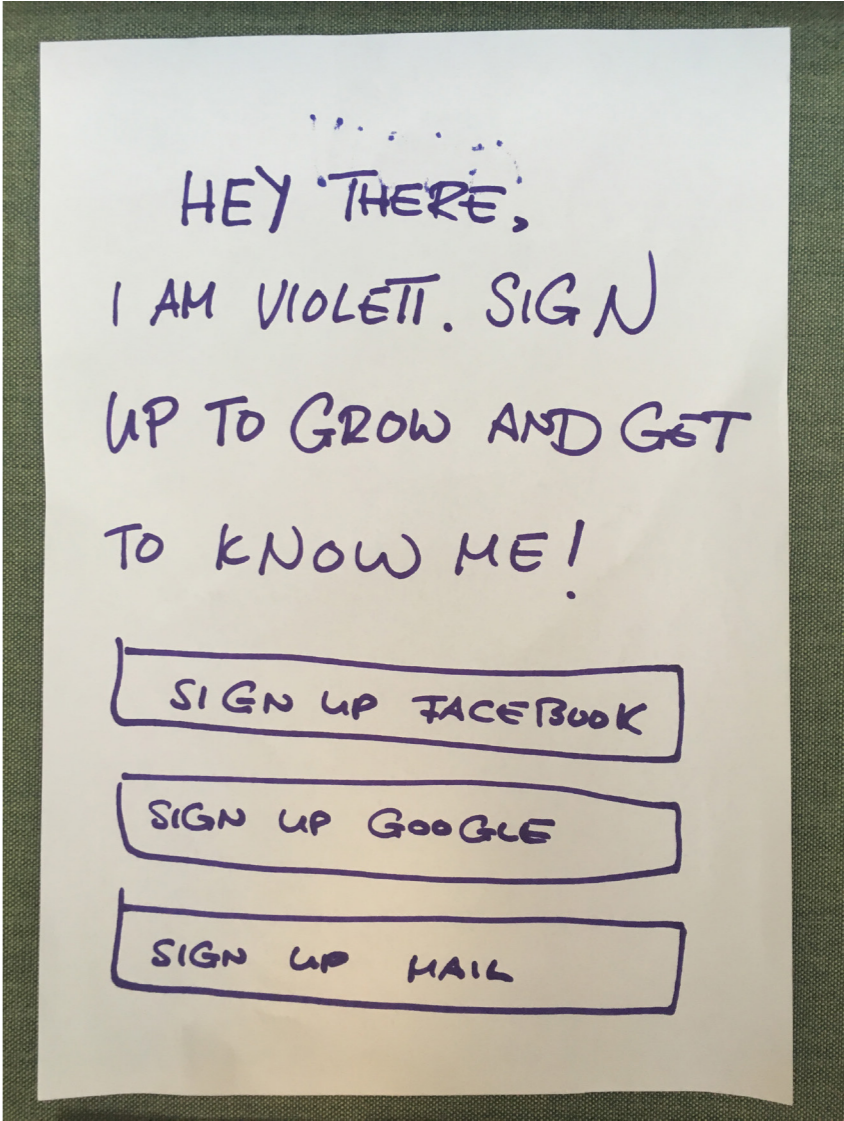 HEY THERE,
I AM VIOLETT. SIGN
UP TO GROW AND GET
TO KNOW ME!
SIGN UP FACEBOOK
SIGN UP GOOGLE
SIGN UP MAIL